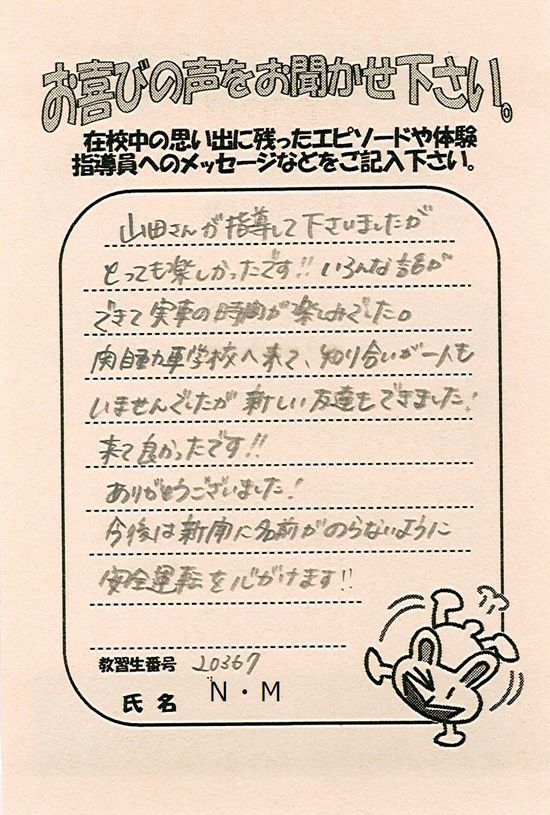 お喜びの声をお聞かせ下さい。
在校中の思い出に残ったエピソードや体験
指導員へのメッセージなどをご記入下さい。
山田さんが指導して下さいましたが
とっても楽しかったです!! いろんな話が
できて実車の時間が楽しみでした。
関自動車学校へ来て、知り合いが一人も
いませんでしたが新しい友達もできました!
来て良かったです!!
ありがとうございました!
今後は新聞に名前がのらないように
安全運転を心がけます!!
教習生番号 20367
氏名 N・M